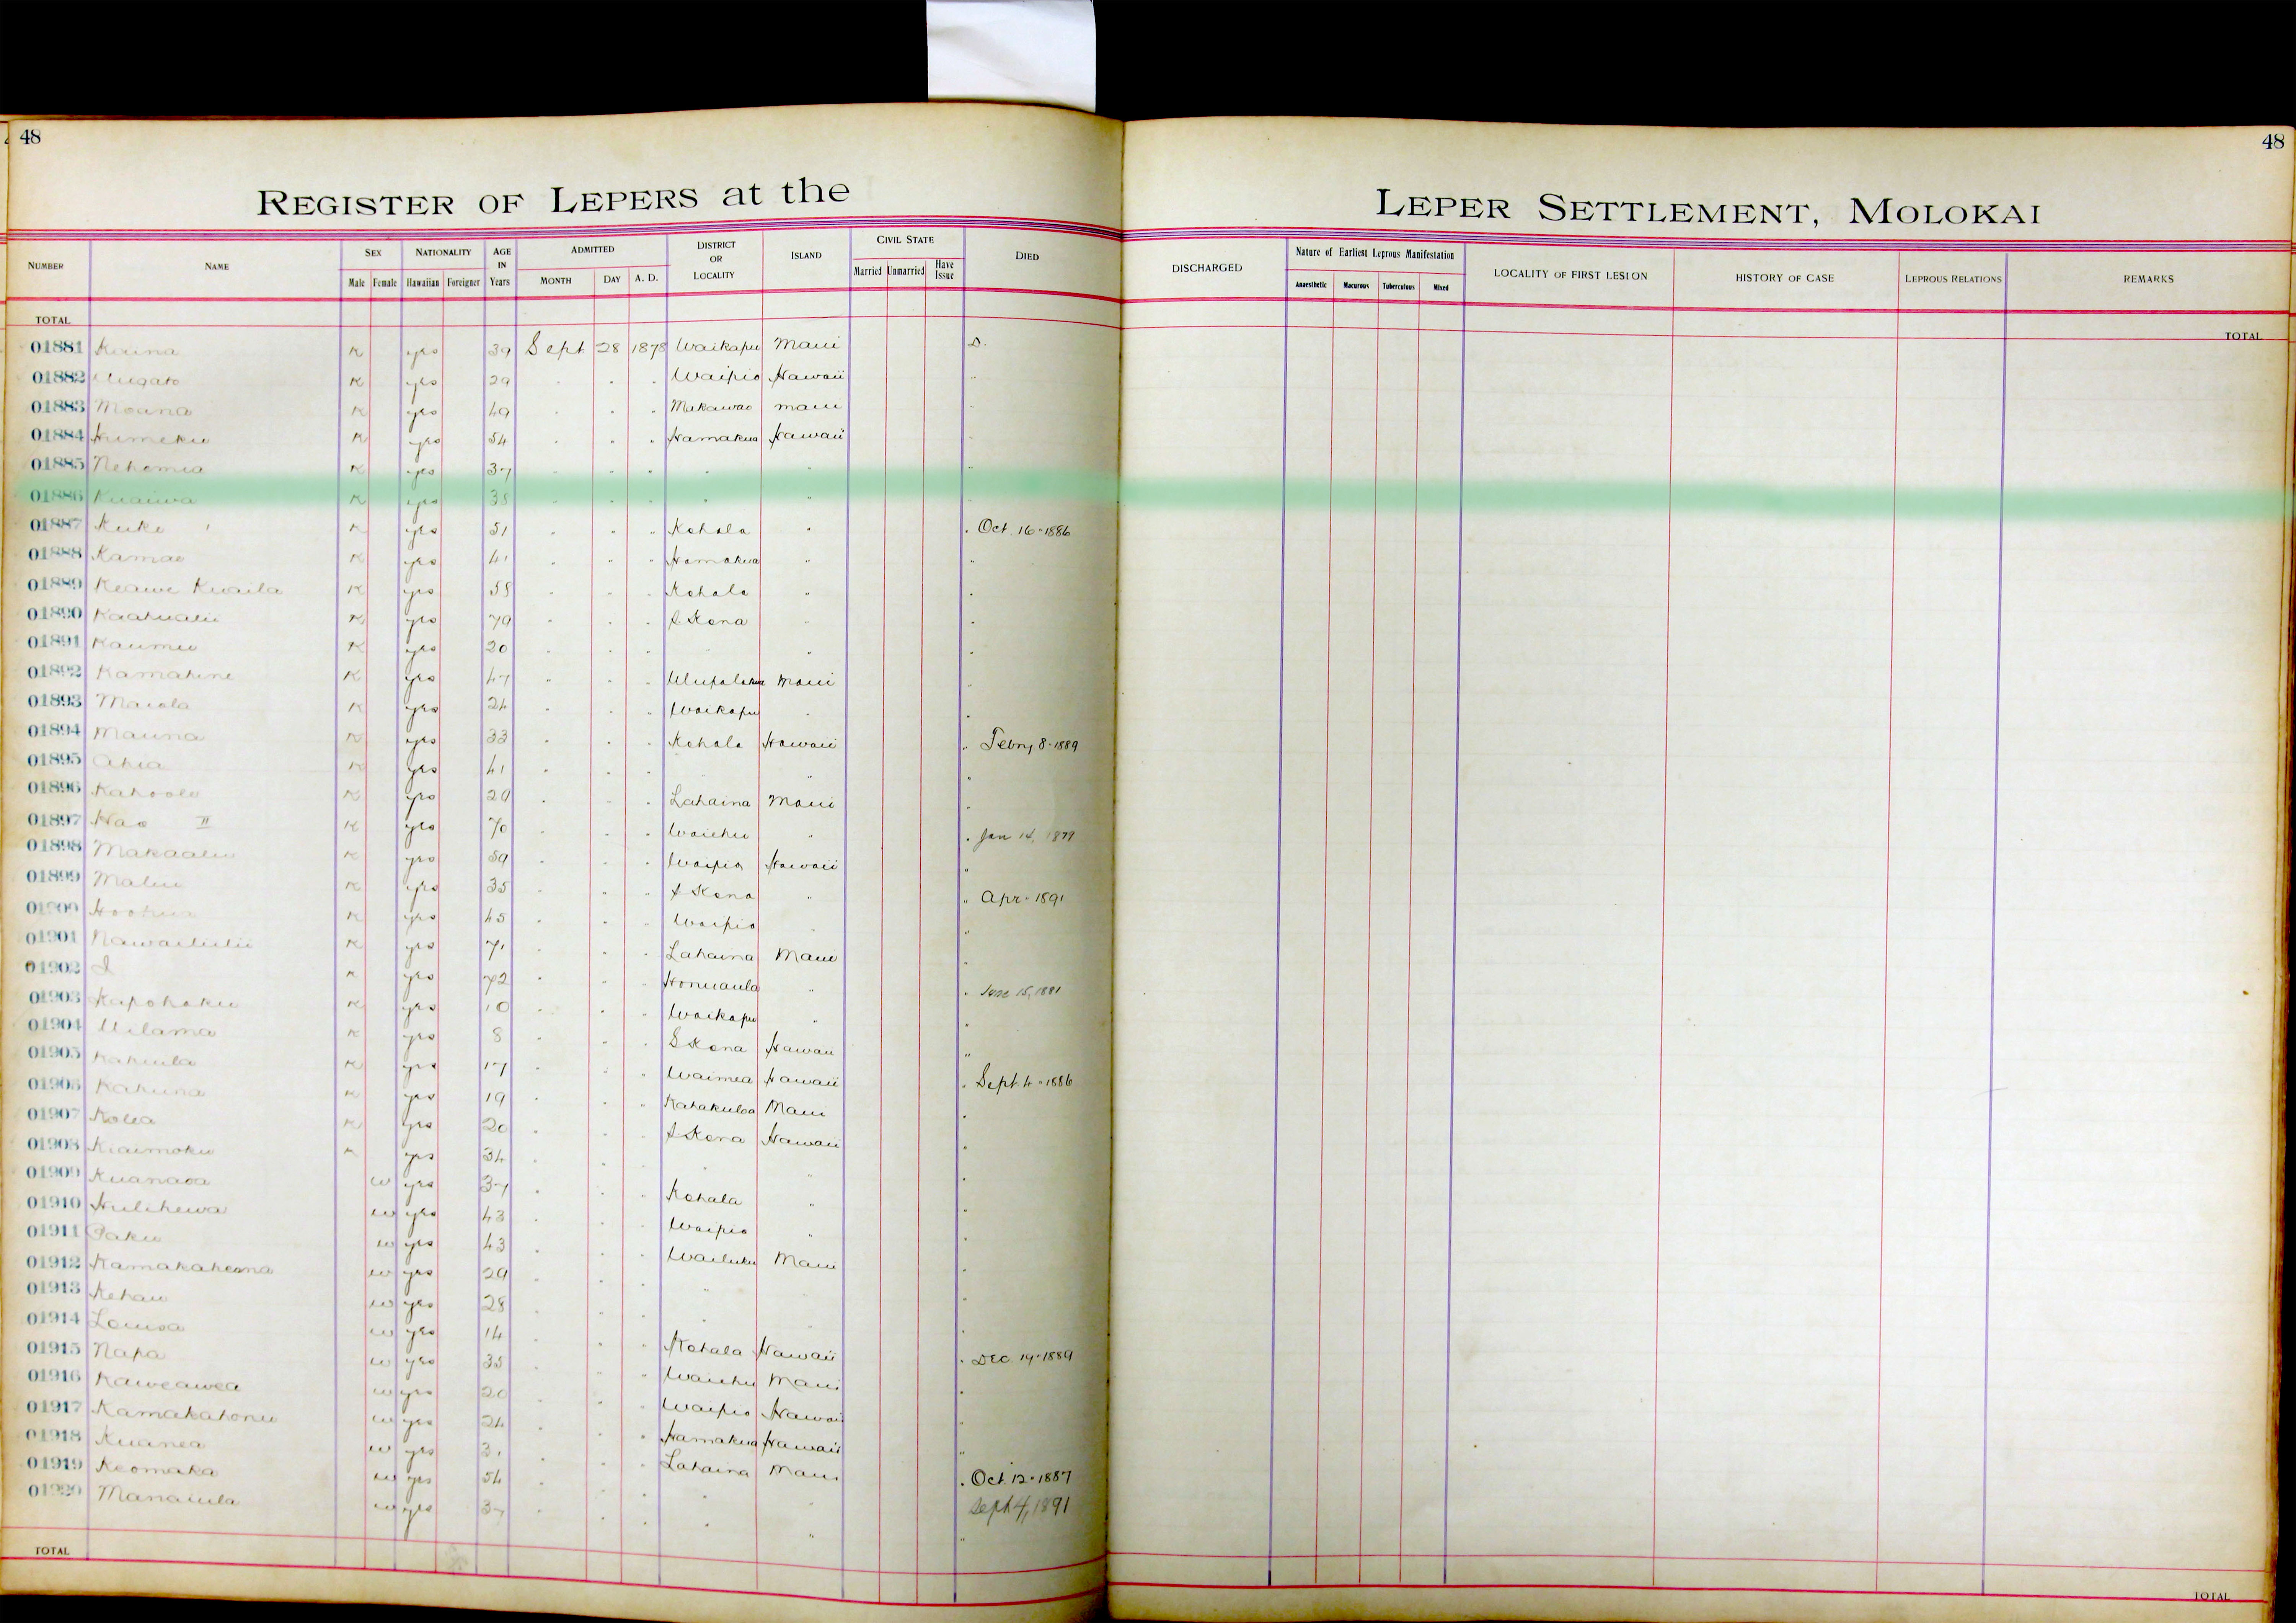 48
48
REGISTER OF LEPERS at the
LEPER SETTLEMENT, MOLOKAI
NUMBER NAME SEX NATIONALITY AGE IN Years ADMITTED DISTRICT OR LOCALITY ISLAND CIVIL STATE DIED DISCHARGED Nature of Earliest Leprous Manifestation LOCALITY OF FIRST LESION HISTORY OF CASE LEPROUS RELATIONS REMARKS
Male Female Hawaiian Foreigner MONTH DAY A. D. Married Unmarried Have Issue Anaesthetic Macurous Tuberculous Mixed
TOTAL
TOTAL
01881 K yes 39 Sept 28 1878 Waikapu Maui D.
01882 K yes 29 " " " Waipio Hawaii "
01883 Moana K yes 49 " " " Makawao Maui "
01884 Humeku K yes 54 " " " Hamakua Hawaii "
01885 Nehemia K yes 37 " " " " " "
01886 Kuaiwa K yes 38 " " " " " "
01887 Kuke K yes 51 " " " Kohala " " Oct. 16 - 1886
01888 Kamao K yes 41 " " " Hamakua " "
01889 Keawe K yes 58 " " " Kohala " "
01890 K yes 79 " " " Kona " "
01891 Kaumu K yes 20 " " " " " "
01892 Kamahine K yes 47 " " " Ulupalakua Maui "
01893 Maiola K yes 24 " " " Waikapu " "
01894 Mauna K yes 33 " " " Kohala Hawaii " Febry 8 - 1889
01895 Ahia K yes 41 " " " " " "
01896 Kahoole K yes 29 " " " Lahaina Maui "
01897 Hao II K yes 70 " " " Waiehu " " Jan 14, 1879
01898 Makaalu K yes 59 " " " Waipio Hawaii "
01899 K yes 35 " " " Kona " " Apr - 1891
01900 K yes 45 " " " Waipio " "
01901 Nawailiilii K yes 71 " " " Lahaina Maui "
01902 I K yes 72 " " " Honuaula " " June 15, 1881
01903 Kapohaku K yes 10 " " " Waikapu " "
01904 Uilama K yes 8 " " " S Kona Hawaii "
01905 K yes 17 " " " Waimea Hawaii " Sept. 4 - 1886
01906 Kahuna K yes 19 " " " Kahakuloa Maui "
01907 Kolea K yes 20 " " " Kona Hawaii "
01908 Kiaimoku K yes 34 " " " " " "
01909 w yes 37 " " " Kohala " "
01910 Hulihewa w yes 43 " " " Waipio " "
01911 Paku w yes 43 " " " Wailuku Maui "
01912 w yes 29 " " " " " "
01913 Kehau w yes 28 " " " " " "
01914 Louisa w yes 14 " " " Kohala Hawaii " Dec. 19 - 1889
01915 Napa w yes 35 " " " Waiehu Maui "
01916 Kaweawea w yes 20 " " " Waipio Hawaii "
01917 Kamakahonu w yes 24 " " " Hamakua Hawaii "
01918 Kuanea w yes 31 " " " Lahaina Maui " Oct 12 - 1887
01919 Keomaka w yes 54 " " " " " Sept 4, 1891
01920 Manaiula w yes 37 " " " " " "
TOTAL
TOTAL